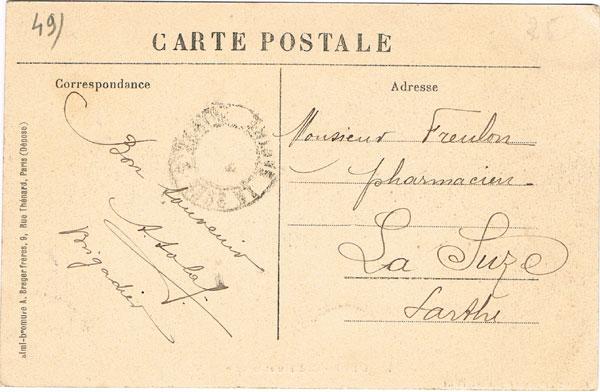 49)
CARTE POSTALE
Correspondance
Adresse
Bon Souvenir
Brigadier
Monsieur Freulon
pharmacien
La Suze
Sarthe
aimi-bromure A. Breger frères, 9, Rue Thénard, Paris (Déposé)